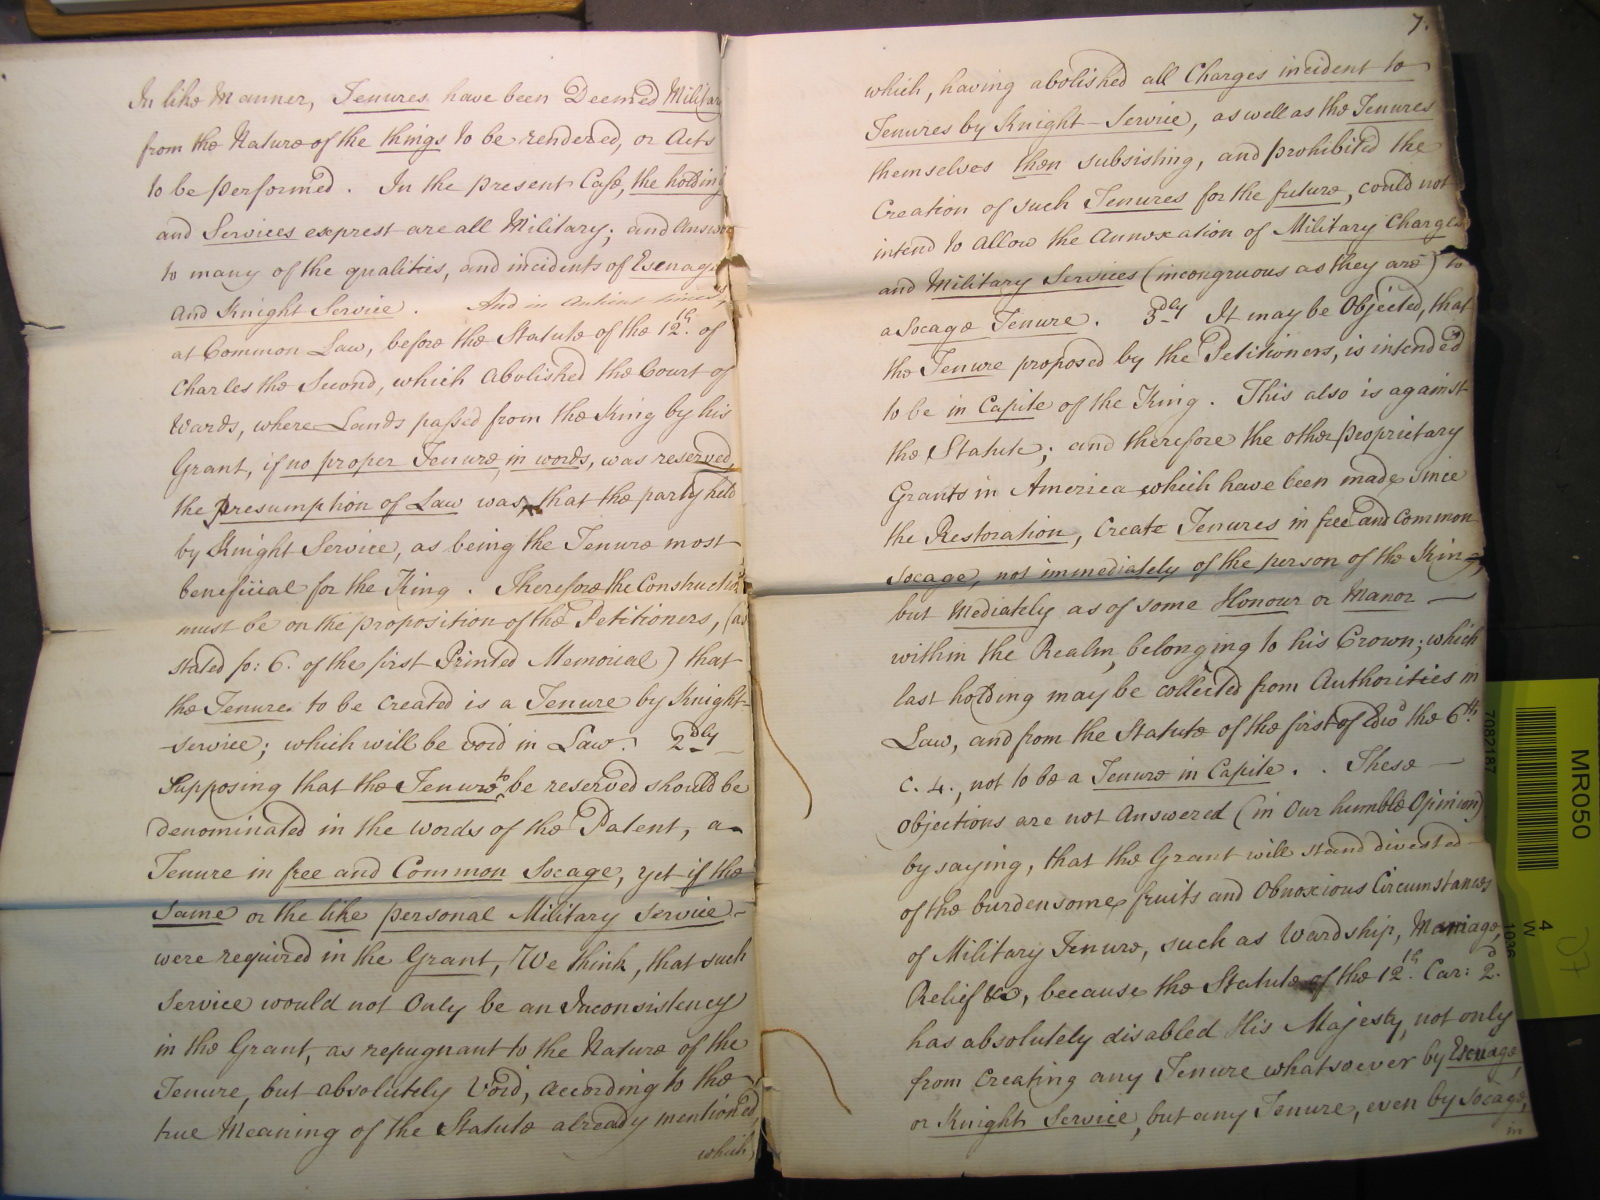 In like Manner, Tenures have been Deemed Military
from the Nature of the things to be rendered, or Acts
to be performed. In the present Case, the holding
and Services exprest are all Military; and Answer
to many of the qualities, and incidents of Escuage
and Knight Service. And in Antient times,
at Common Law, before the Statute of the 12th. of
Charles the Second, which Abolished the Court of
Wards, where Lands passed from the King by his
Grant, if no proper Tenure, in words, was reserved,
the presumption of Law was, that the party held
by Knight Service, as being the Tenure most
beneficial for the King. Therefore the Construction
must be on the proposition of the Petitioners, (as
stated fo: 6. of the first Printed Memorial) that
the Tenure to be Created is a Tenure by Knight-
-service; which will be void in Law. 2dly
Supposing that the Tenure to be reserved should be
denominated in the words of the Patent, a
Tenure in free and Common Socage, yet if the
same or the like personal Military Service
were required in the Grant, We think, that such
Service would not Only be an Inconsistency
in the Grant, as repugnant to the Nature of the
Tenure, but absolutely Void, according to the
true Meaning of the Statute already mentioned,
which,
7.
which, having abolished all Charges incident to
Tenures by Knight-Service, as well as the Tenures
themselves then subsisting, and prohibited the
Creation of such Tenures for the future, could not
intend to allow the Annexation of Military Charges
and Military Services (incongruous as they are) to
a Socage Tenure. 3dly It may be Objected, that
the Tenure proposed by the Petitioners, is intended
to be in Capite of the King. This also is against
the Statute; and therefore the other proprietary
Grants in America which have been made since
the Restoration, Create Tenures in free and Common
Socage, not immediately of the person of the King,
but Mediately as of some Honour or Manor
within the Realm, belonging to his Crown; which
last holding may be collected from Authorities in
Law, and from the Statute of the first of Edwd the 6th.
c. 4., not to be a Tenure in Capite. These
Objections are not Answered (in Our humble Opinion)
by saying, that the Grant will stand divested
of the burdensome fruits and Obnoxious Circumstances
of Military Tenure, such as Wardship, Marriage,
Relief &c, because the Statute of the 12th. Car: 2d.
has absolutely disabled His Majesty, not only
from Creating any Tenure whatsoever by Escuage,
or Knight Service, but any Tenure, even by Socage,
in
7082187
MR050
4
W
1036